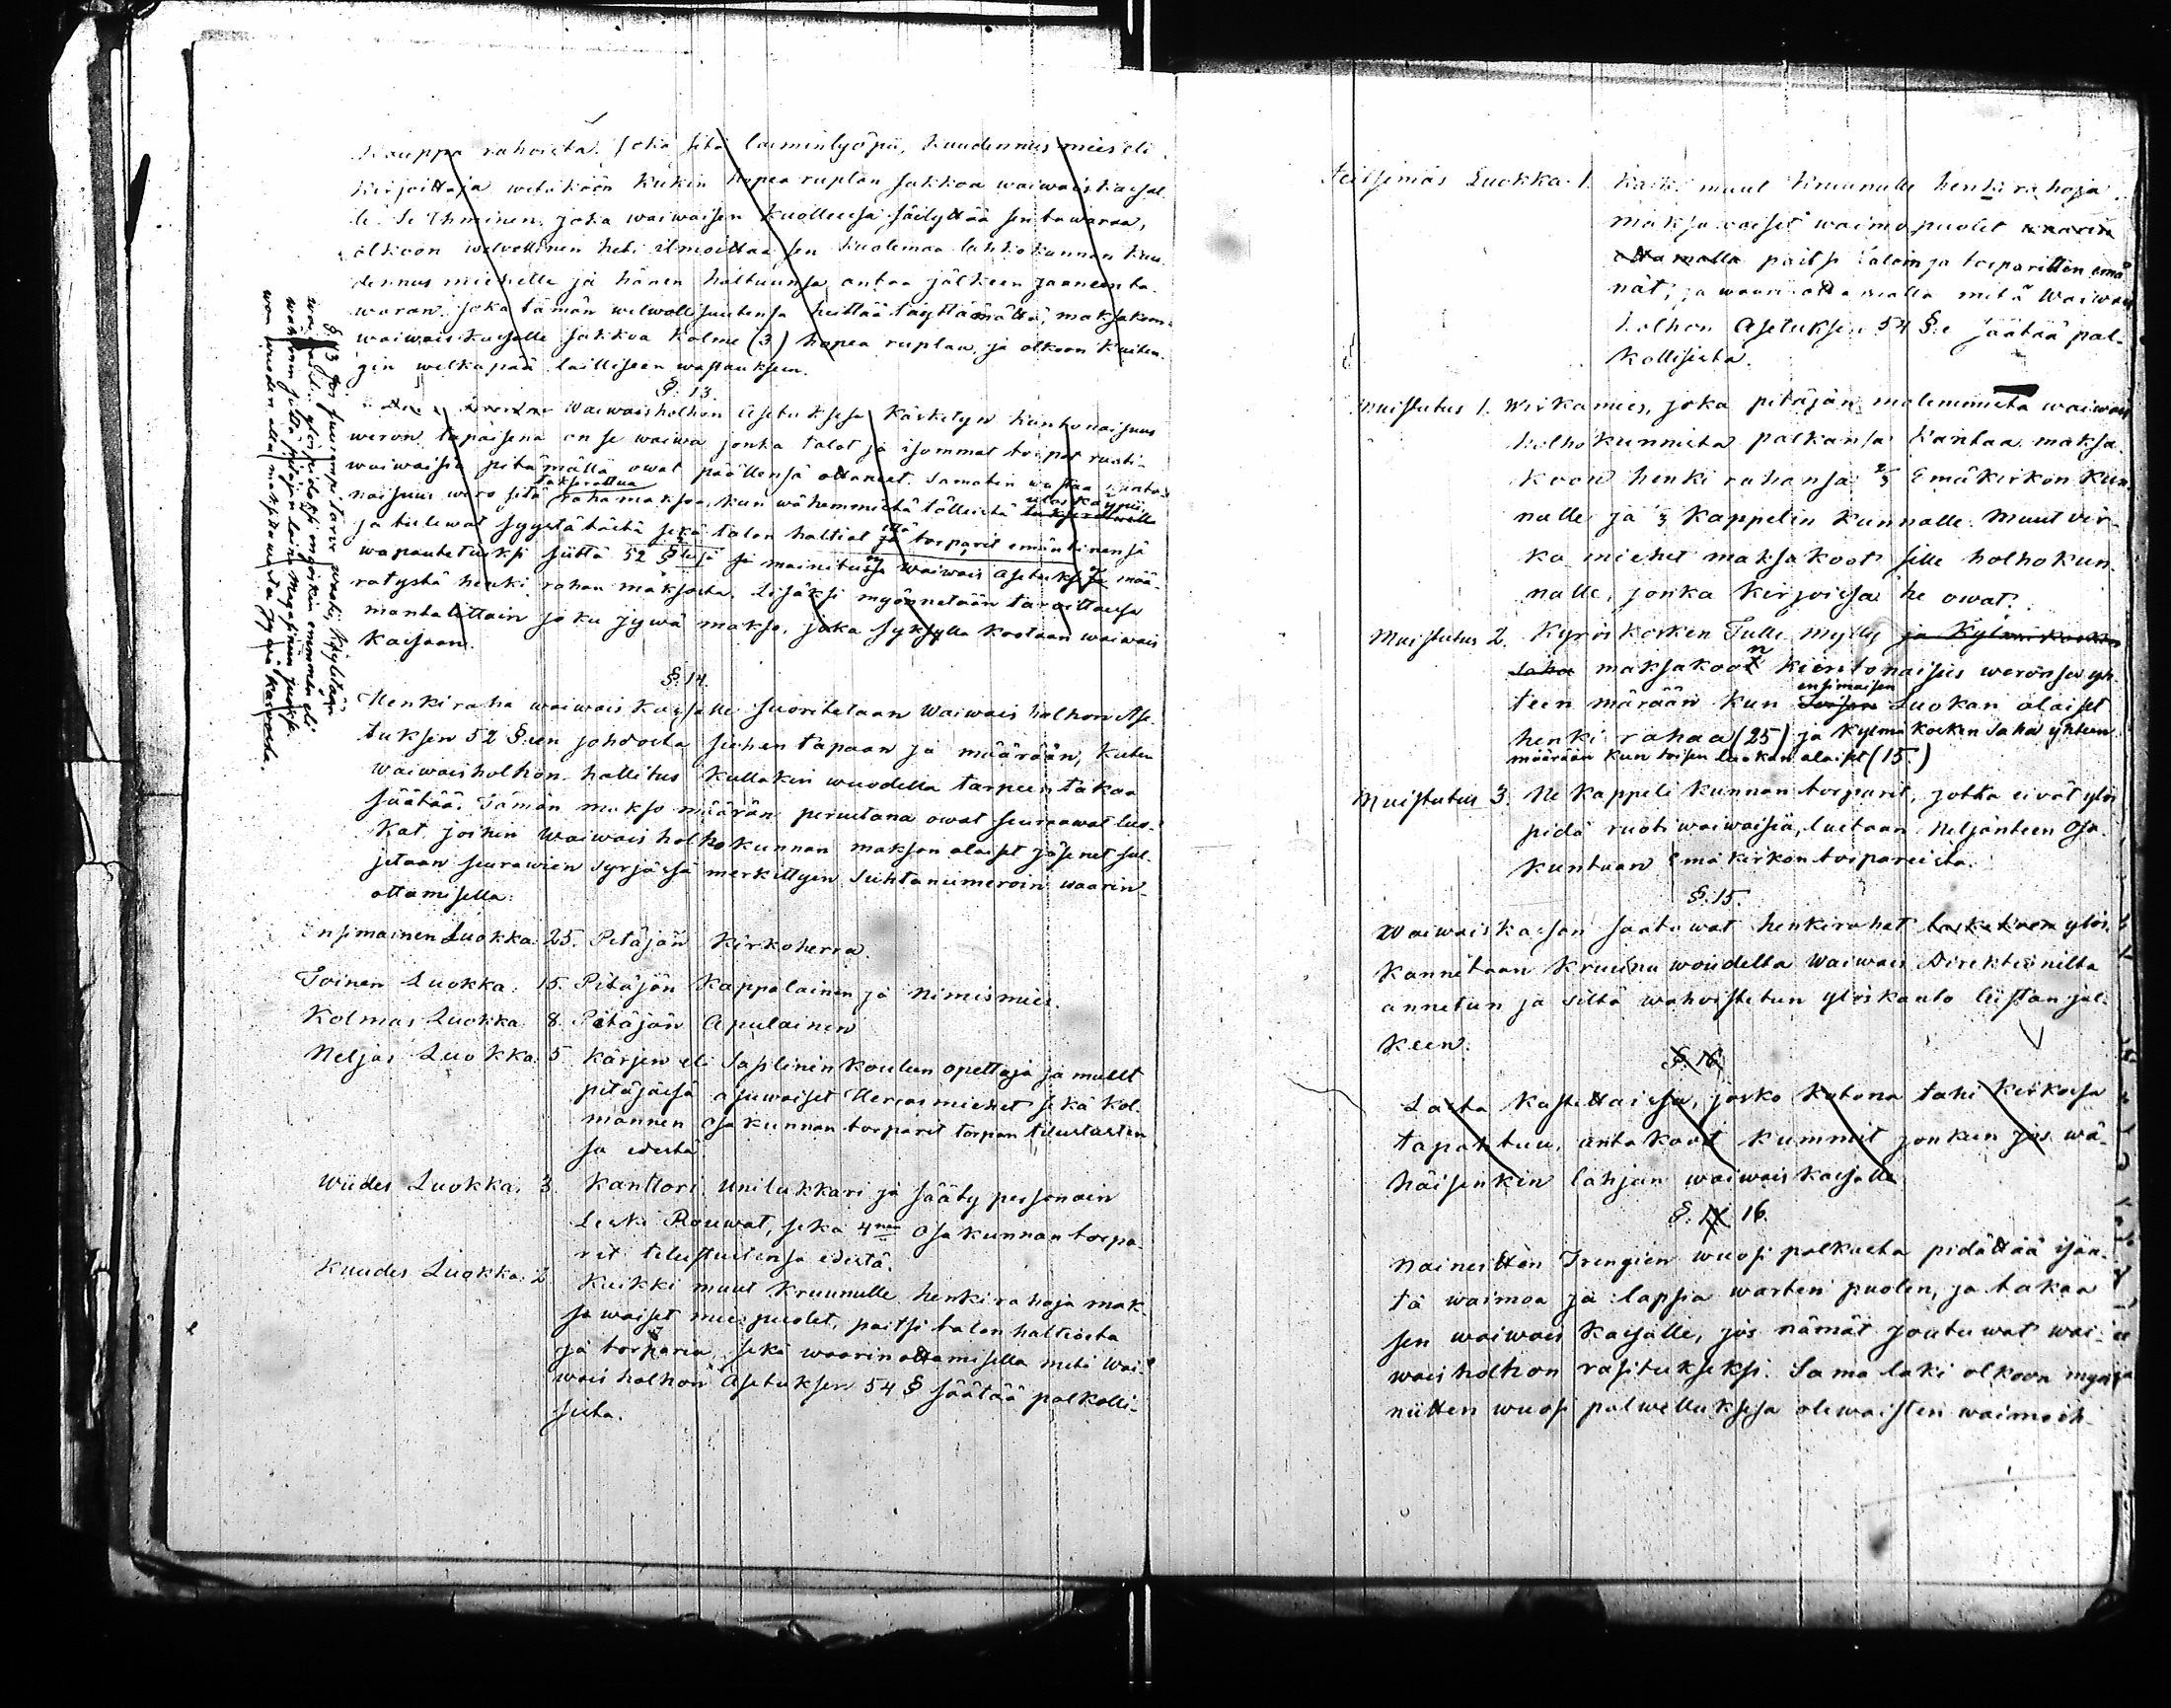 Kauppa rahoista. Joka sitä laiminlyöpii, kuudennus mies eli
kirjoittaja wetäköön kukin hopea ruplan sakkoa waiwaiskassal-
le. Se Ihminen, joka waiwaisen kuolleesa säilyttää sen tawaraa,
olkoon welvollinen heti ilmoittaa sen kuolemaa lahkokunnan kuu-
dennus miehelle ja hänen haltuunsa antaa jälkeen jääneen ta-
waran. Joka tämän welwollisuutensa heittää täyttämättä, maksakoon
waiwaiskassalle sakkoa kolme (3) hopea ruplaa, ja olkoon kuiten-
gin welkapää lailliseen wastaukseen.
§. 13.
Waiwaisholhon Asetuksesa käsketyn kuntonaisuus
weron tapaisena on se waiwa jonka talot ja isommat torpat ruoti-
waiwaisia pitämällä owat päällensä ottaneet. Samatin wastaa kunto-
naisuus wero sitä takserattua raha maksoa, kun wähemmistä tölleistä uloskäypii takseratulle
ja tulewat syystä tästä sekä talon haltiat että ja torparit emäntinensä
wapautetuksi siittä 52 §:sä ja mainitusa waiwais Asetuksesa mää-
rätystä henki rahan maksosta. Lisäksi myönnetään tarwittaessa
manttalittain joku jywä makso, joka syksyllä kootaan waiwais
kassaan.
§ 13 Jos suurempi tarve waatii, käytetään
waiwaisille ylöspidoksi ongoskin enemmän eli
wähemin siitä pitäjän laina Magasinin juokse-
wan wuoden alla maksetuusta jywä kaswosta.
§. 14.
Henkiraha waiwais kassalle suoritetaan Waiwais holhon Ase-
tuksen 52 §:en johdosta siihen tapaan ja määrään, kuten
Waiwaisholhon hallitus kullakin wuodella tarpeen takaa
säätää. Tämän makso määrän perustana owat seuraawat luo-
kat, joihin Waiwais holhokunnan makson alaiset jäsenet sul-
jetaan seurawien syrjässä merkittyin suhtanumeroin waarin-
ottamisella:
Ensimäinen Luokka: 25. Pitäjän Kirkoherra.
Toinen Luokka: 15. Pitäjän Kappalainen ja Nimismies.
Kolmas Luokka: 8. Pitäjän Apulainen
Neljäs Luokka: 5. Kärjen eli Saplinin koulun opettaja ja muut
pitäjäsä asuwaiset Herrasmiehet sekä kol-
mannen osakunnan torparit torpan tilustusten
sa edestä
Wiides Luokka: 3. Kanttori, Unilukkari ja sääty personain
Leski Rouwat, sekä 4nen osakunnan torpa-
rit tilustustensa edestä.
Kuudes Luokka: 2. Kaikki muut Kruunulle henkirahoja mak-
sowaiset miespuolet, paitsi talon haltiosta
ja torparia, sekä waarinottamisella mitä Wai-
wais holhon Asetuksen 54 § säätää palkolli-
sista.
Seitsemäs Luokka 1. Kaikki muut Kruunulle henkirahoja
maksowaiset waimopuolet waarin
ottamalla paitsi talon ja torparitten emän-
nät, ja waarin ottamalla mitä Waiwais
holhon Asetuksen 54 §:e säätää pal-
kollisista.
Muistutus 1. Wirkamies, joka pitäjän molemmista waiwais
holhokunnista palkansa kantaa maksa-
koon henki rahansa 2/3 Emäkirkon kun-
nalle ja 1/3 Kappelin kunnalle. Muut vir-
ka miehet maksakoot sille holhokun-
nalle, jonka kirjoissa he owat.
Muistutus 2. Kyröskosken Tulli mylly ja Kylmäkosken
Saha maksakoon kuntonaisuus weronsa yh-
teen märään kun ensimäisen Luokan alaiset
henki rahaa (25) ja Kylmäkosken Saha yhteen
määrään kun toisen luokan alaiset (15.)
Muistutus 3. Ne Kappeli kunnan torparit, jotka eivät ylös
pidä ruotiwaiwaisia, luetaan neljänteen Osa-
kuntaan Emäkirkon torpareista.
§. 15.
Waiwaiskassan saatawat henkirahat lasketaan ylös
kannetaan Kruunu woudilta Waiwais Direktionilta
annetun ja siltä wahvistetun yloskanto liistan jäl-
keen.
§. 16
Lasta kastettaissa, josko kotona tahi kirkossa
tapahtuu, antakoot kummit jonkun jos wä-
häisenkin lahjan waiwaiskassalle.
§. 17 16.
Naineitten Trengien wuosi palkasta pidättää isän-
tä waimoa ja lapsia warten puolen, ja takaa
sen waiwais kassalle, jos nämät joutuwat wai-
waisholhon rasitukseksi. Sama laki olkoon myös
niitten wuosi palwelluksessa olewaisten waimoih-